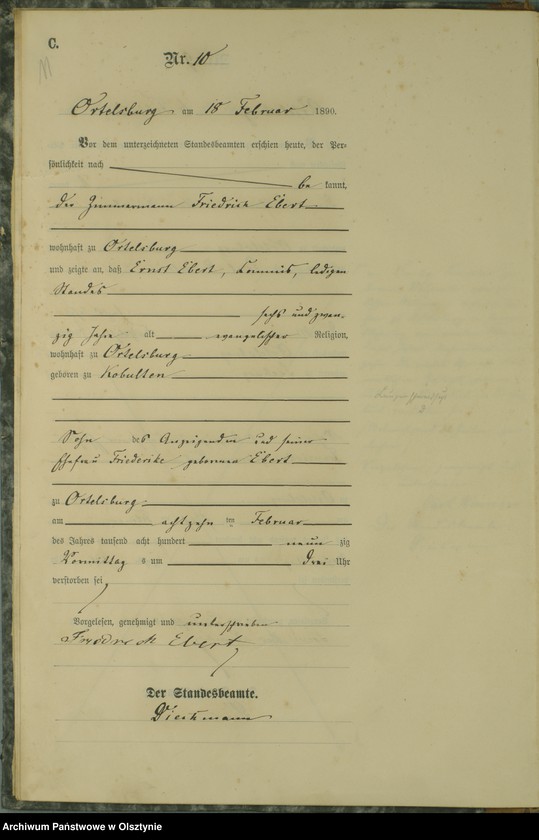 C.
Nr. 10
Ortelsburg am 18 Februar 1890.
Vor dem unterzeichneten Standesbeamten erschien heute, der Per-
sönlichkeit nach
be kannt,
der Zimmermann Friedrich Ebert
wohnhaft zu Ortelsburg
und zeigte an, daß Ernst Ebert, Kommis, ledigen
Standes
sechs und zwan-
zig Jahre alt evangelischer Religion,
wohnhaft zu Ortelsburg
geboren zu Kobulten
Sohn des Anzeigenden und seiner
Ehefrau Friederike geborenen Ebert
zu Ortelsburg
am achtzehn ten Februar
des Jahres tausend acht hundert neun zig
Vormittag s um drei Uhr
verstorben sei
Vorgelesen, genehmigt und unterschrieben
Friedrich Ebert
Der Standesbeamte.
Dieckmann
Archiwum Państwowe w Olsztynie